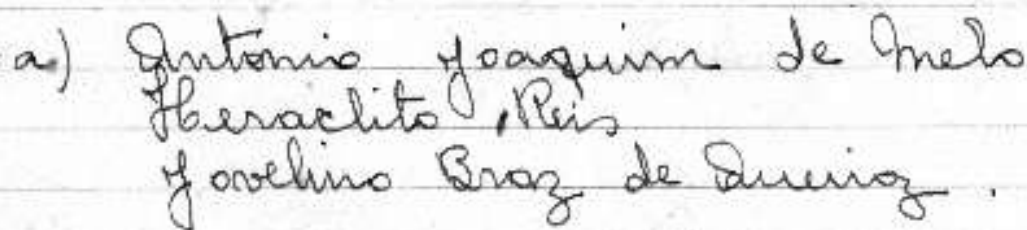 a) Antonio Joaquim de Melo
Heraclito Reis
Jovelino Braz de Queiroz.